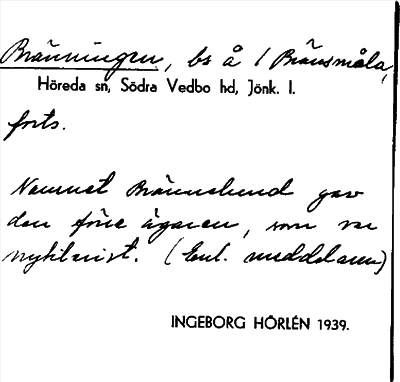 Bränningen, bs å 1 Bränsmåla,
Höreda sn, Södra Vedbo hd, Jönk. l.
forts.
Namnet Brännslund gav
den förre ägaren, som var
nykterist. (Enl. meddelaren)
INGEBORG HÖRLÉN 1939.